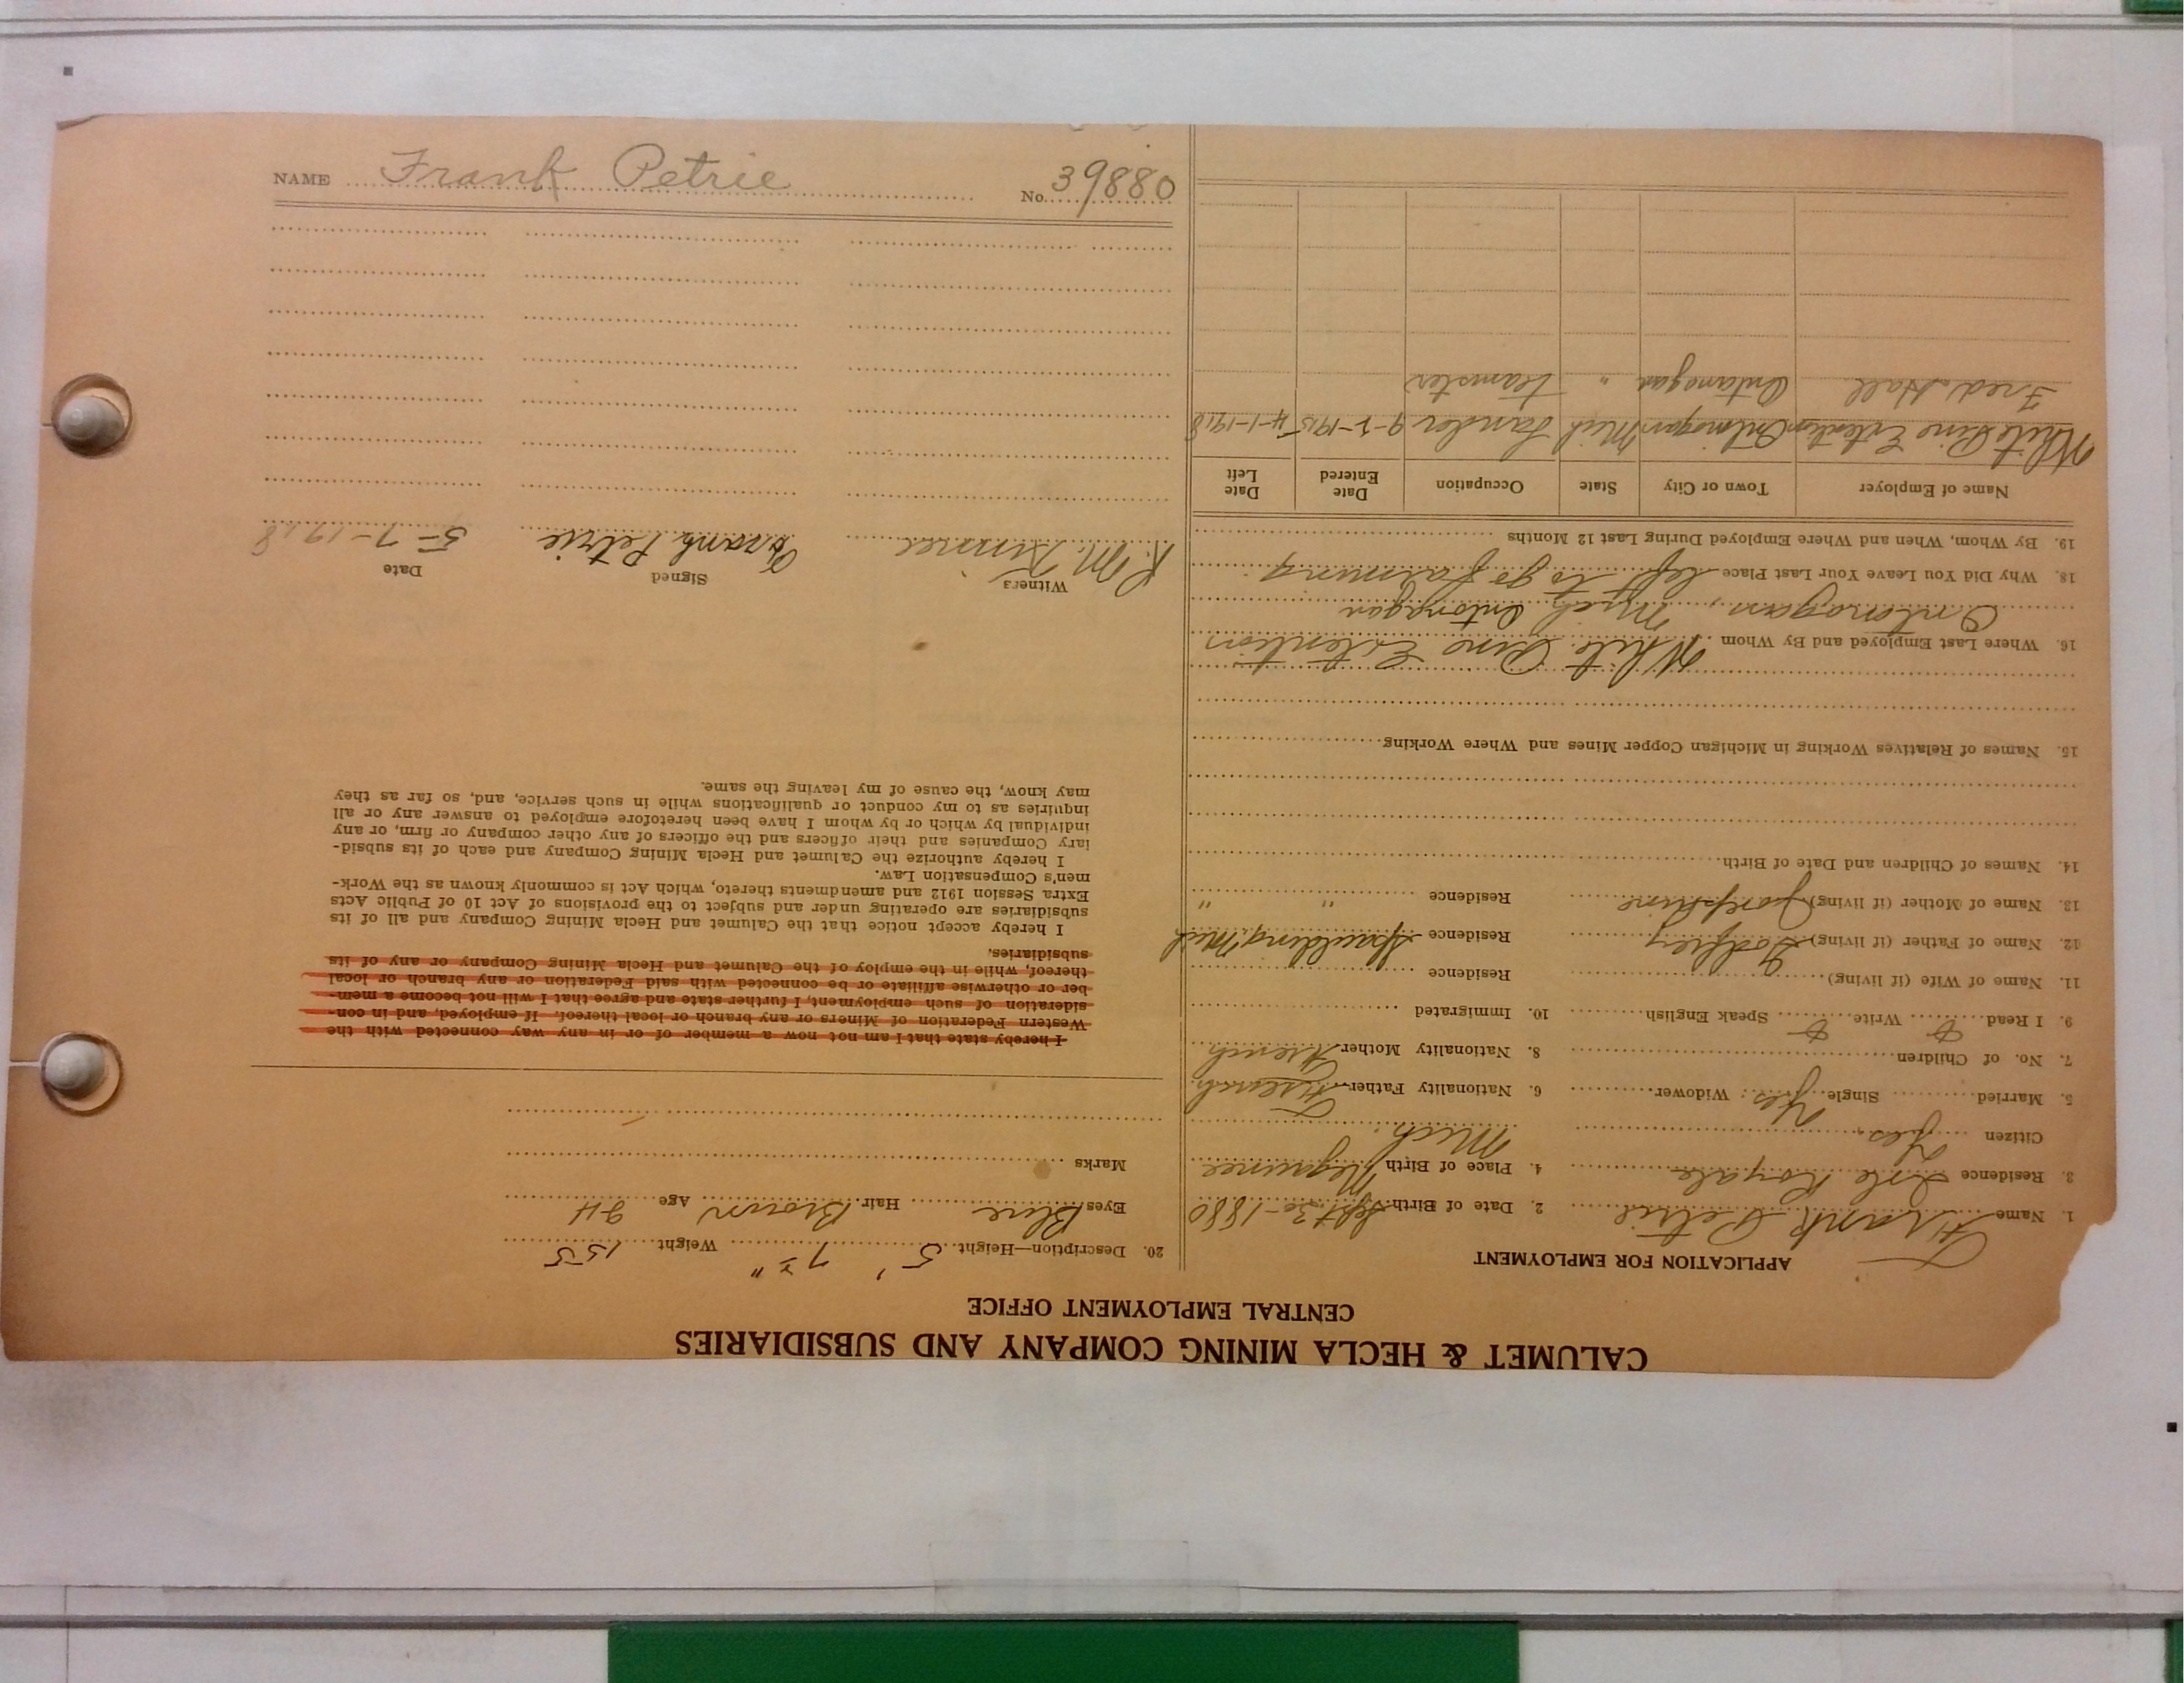 CALUMET & HECLA MINING COMPANY AND SUBSIDIARIES
CENTRAL EMPLOYMENT OFFICE
APPLICATION FOR EMPLOYMENT
1. Name Frank Petrie 2. Date of Birth Sept 30-1880
3. Residence Isle Royale 4. Place of Birth Negaunee
Citizen Yes. Mich.
5. Married Single Yes: Widower 6. Nationality Father French
7. No. of Children 8. Nationality Mother French
9. I Read Write Speak English 10. Immigrated
11. Name of Wife (if living) Residence
12. Name of Father (if living) Godfrey Residence Spaulding, Mich
13. Name of Mother (if living) Josephine Residence " "
14. Names of Children and Date of Birth
15. Names of Relatives Working in Michigan Copper Mines and Where Working
16. Where Last Employed and By Whom White Pine Extention
Ontonagon, Mich Ontonagan
18. Why Did You Leave Your Last Place left to go farming
19. By Whom, When and Where Employed During Last 12 Months
Name of Employer Town or City State Occupation Date Entered Date Left
White Pine Extention Ontonagon Mich Lander 9-2-1915 4-1-1918
Fred Hall Ontonagan " teamster
20. Description—Height 5' 7½" Weight 155
Eyes Blue Hair Brown Age
Marks
I hereby state that I am not now a member of or in any way connected with the
Western Federation of Miners or any branch or local thereof. If employed, and in con-
sideration of such employment, I further state and agree that I will not become a mem-
ber or otherwise affiliate or be connected with said Federation or any branch or local
thereof, while in the employ of the Calumet and Hecla Mining Company or any of its
subsidiaries.
I hereby accept notice that the Calumet and Hecla Mining Company and all of its
subsidiaries are operating under and subject to the provisions of Act 10 of Public Acts
Extra Session 1912 and amendments thereto, which Act is commonly known as the Work-
men's Compensation Law.
I hereby authorize the Calumet and Hecla Mining Company and each of its subsid-
iary Companies and their officers and the officers of any other company or firm, or any
individual by which or by whom I have been heretofore employed to answer any or all
inquiries as to my conduct or qualifications while in such service, and, so far as they
may know, the cause of my leaving the same.
Witness Signed Date
R. M. Frank Petrie 5-7-1918
NAME Frank Petrie No. 39880